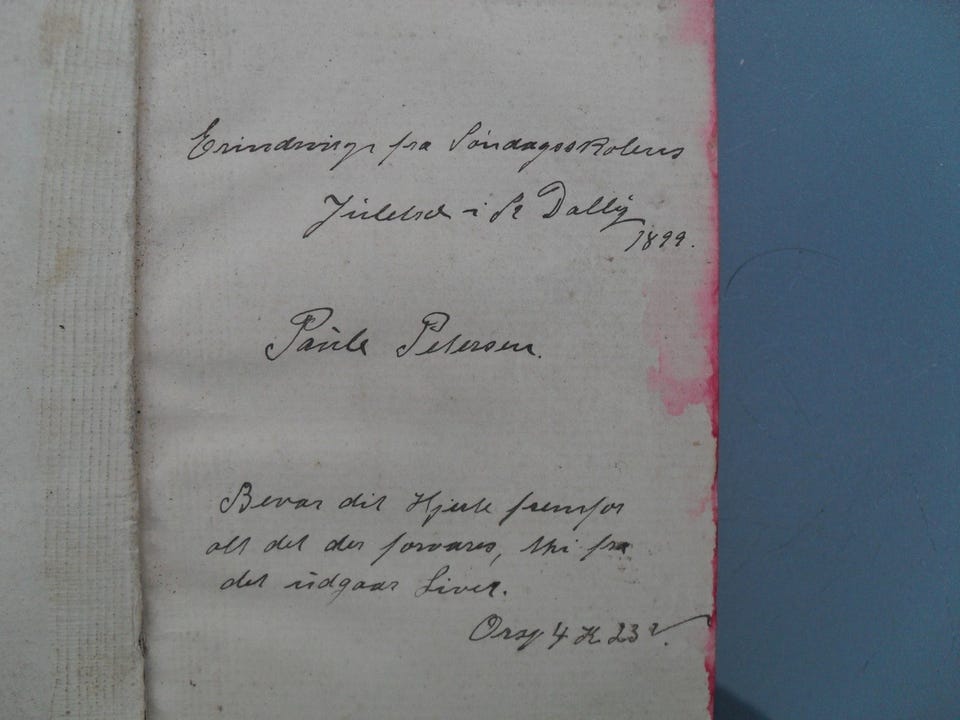 Erindring fra Søndagsskolens
Juletræ i St Dalby
1899.
Paula Petersen.
Bevar dit Hjerte fremfor
alt det der forvares, thi fra
det udgaar Livet.
Ordsp 4 K 23 v.